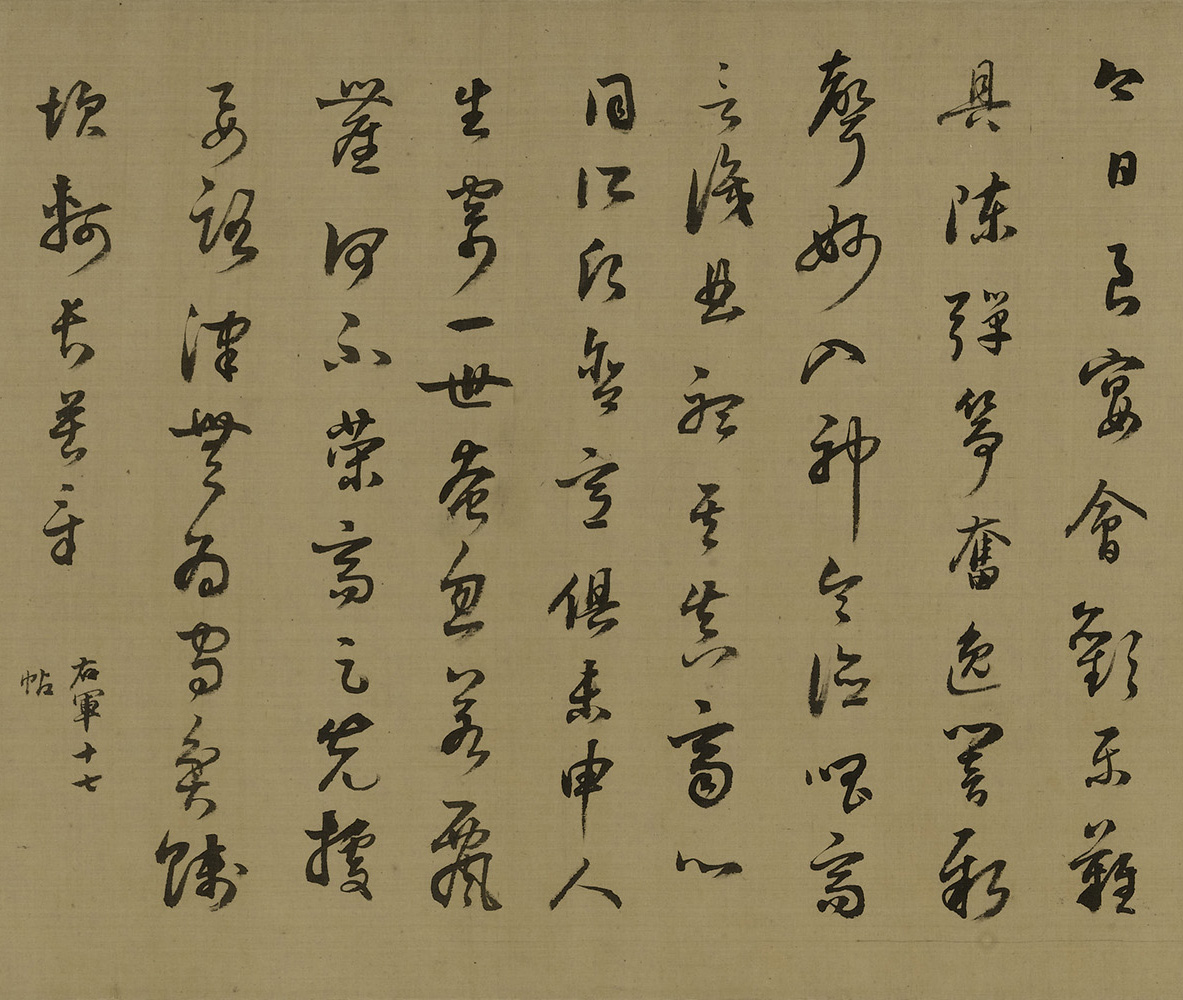 今日良宴會歡樂難
具陳彈箏奮逸響新
聲妙入神令德唱高
言識曲聽其真齊心
同所願含意俱未申人
生寄一世奄忽若飄
塵何不策高足先據
要路津無為守貧賤
坎軻長苦辛
右軍十七
帖